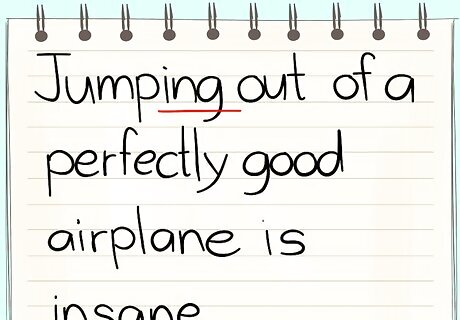 Jumping out of a
perfectly good
airplane is
insane